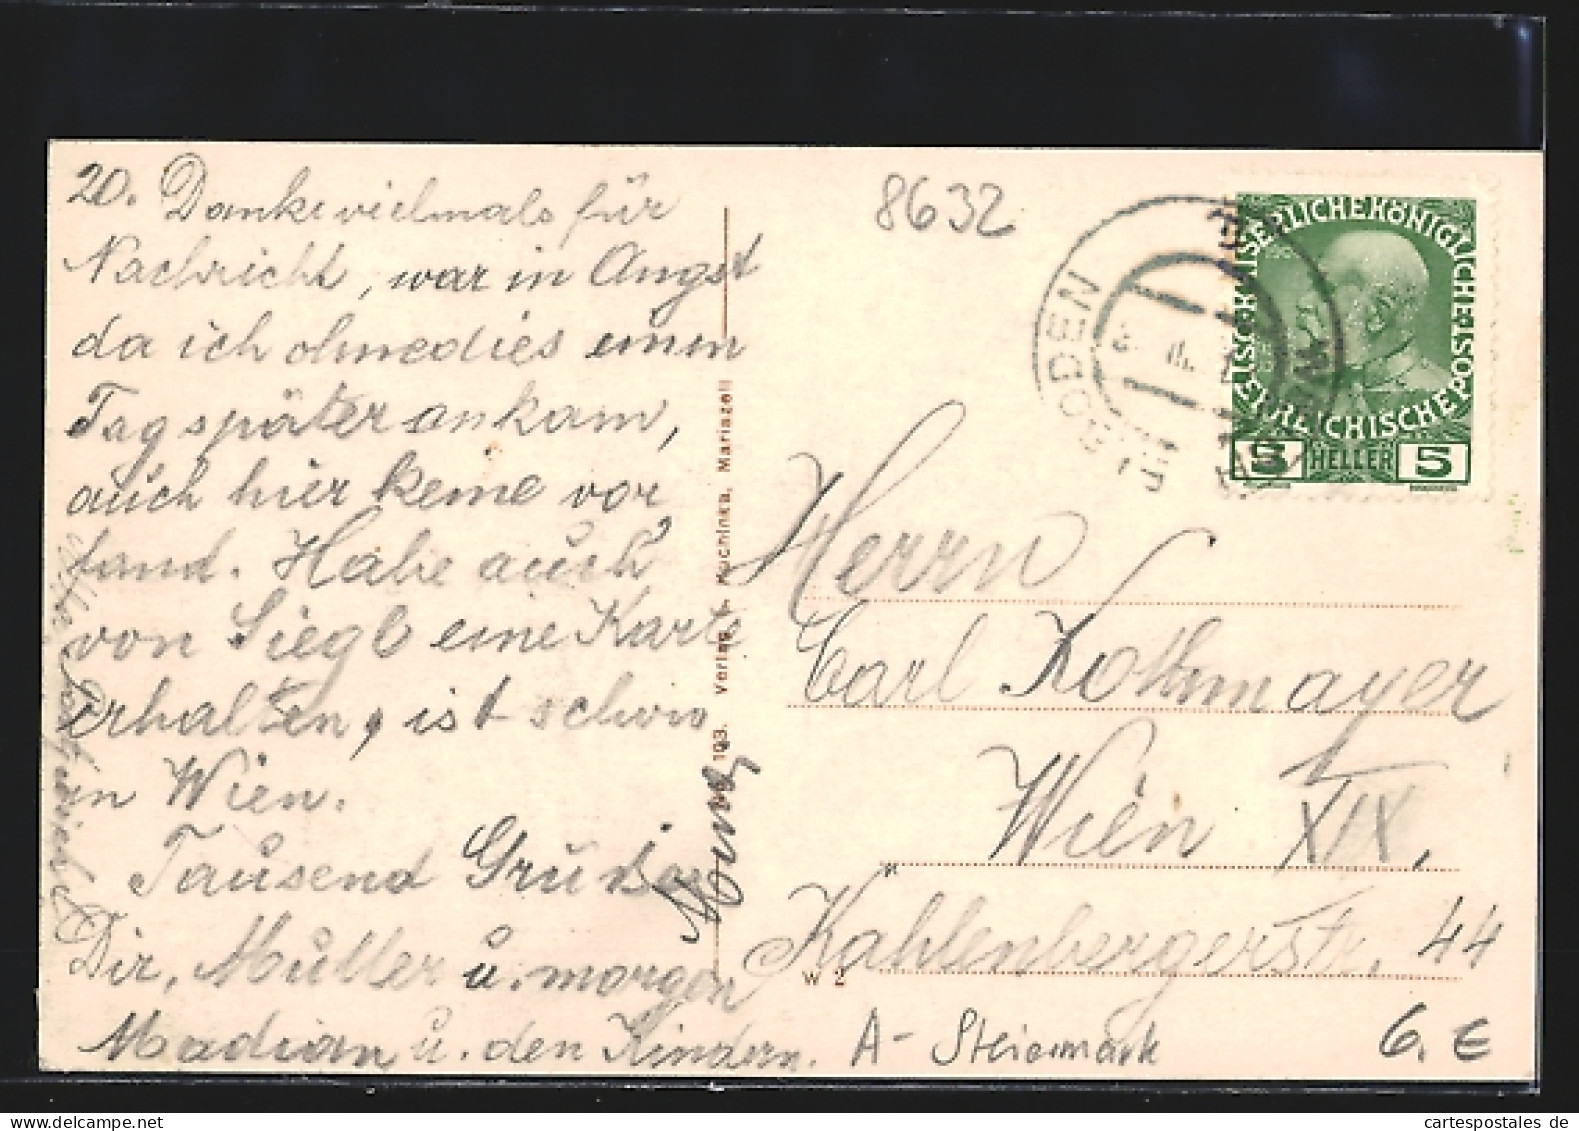 20. Danke vielmals für
Nachricht, war in Angst
da ich ohnedies einen
Tag später ankam,
auch hier keine vor
fand. Habe auch
von Siegl eine Karte
erhalten, ist schon
in Wien.
Tausend Grüße
Dir, Müller u. morgen
Madian u. den Kindern.
Verlag Kuchinka, Mariazell
103.
8632
KAISERLICHE KÖNIGLICHE ÖSTERREICHISCHE POST
5 HELLER 5
Herrn
Carl Kothmayer
Wien XIX,
Kahlenbergerstr. 44
W 2
A- Steiermark
6. €
www.delcampe.net
cartespostales de